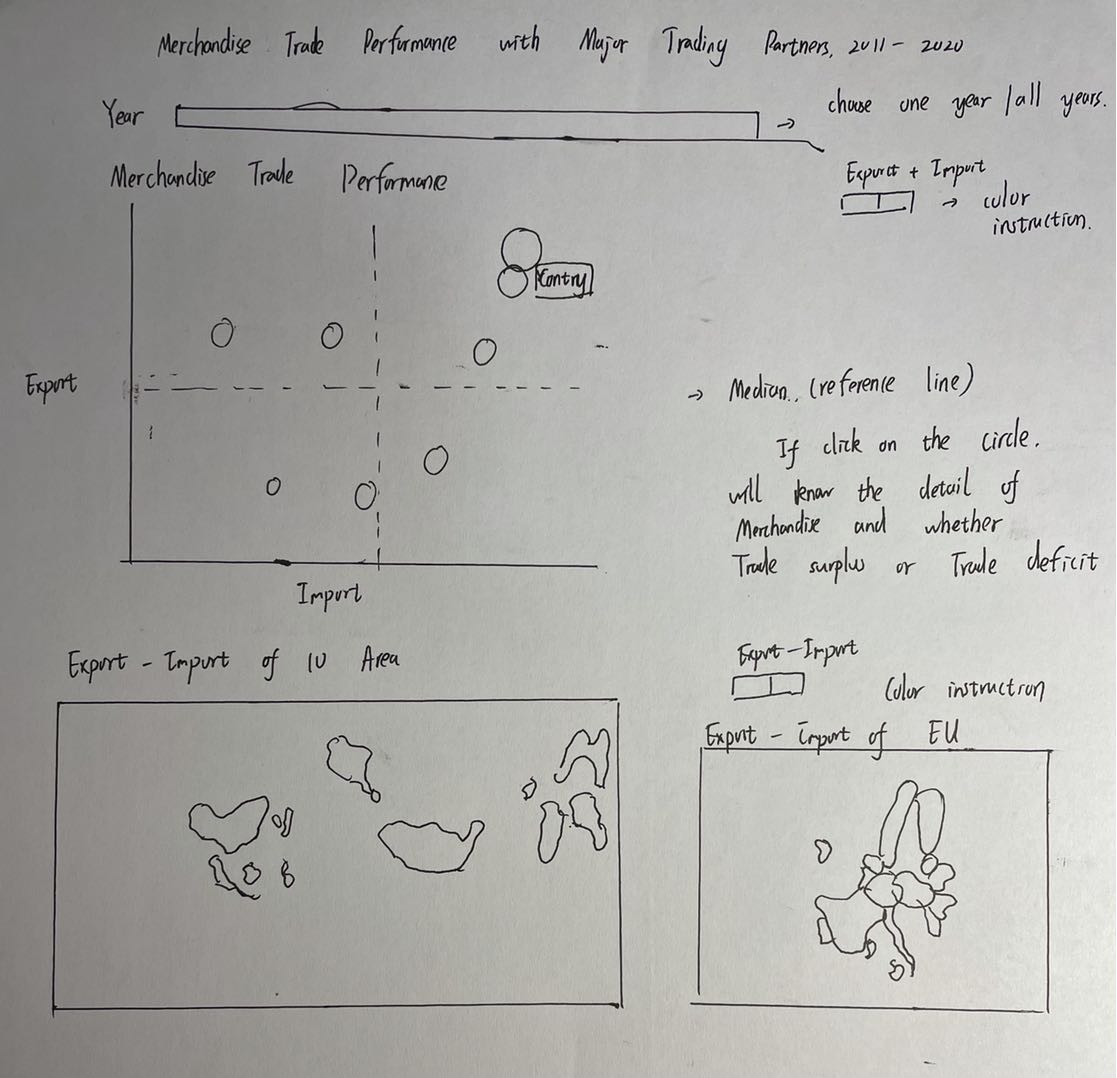 Merchandise Trade Performance with Major Trading Partners, 2011 - 2020
Year
→ choose one year / all years.
Merchandise Trade Performane
Exporct + Import
→ color
instruction.
Contry
Export
→ Median.. (reference line)
If click on the circle.
will know the detail of
Merchandise and whether
Trade surplus or Trade deficit
Import
Export - Import of 10 Area
Export - Import
Color instruction
Export - Import of EU